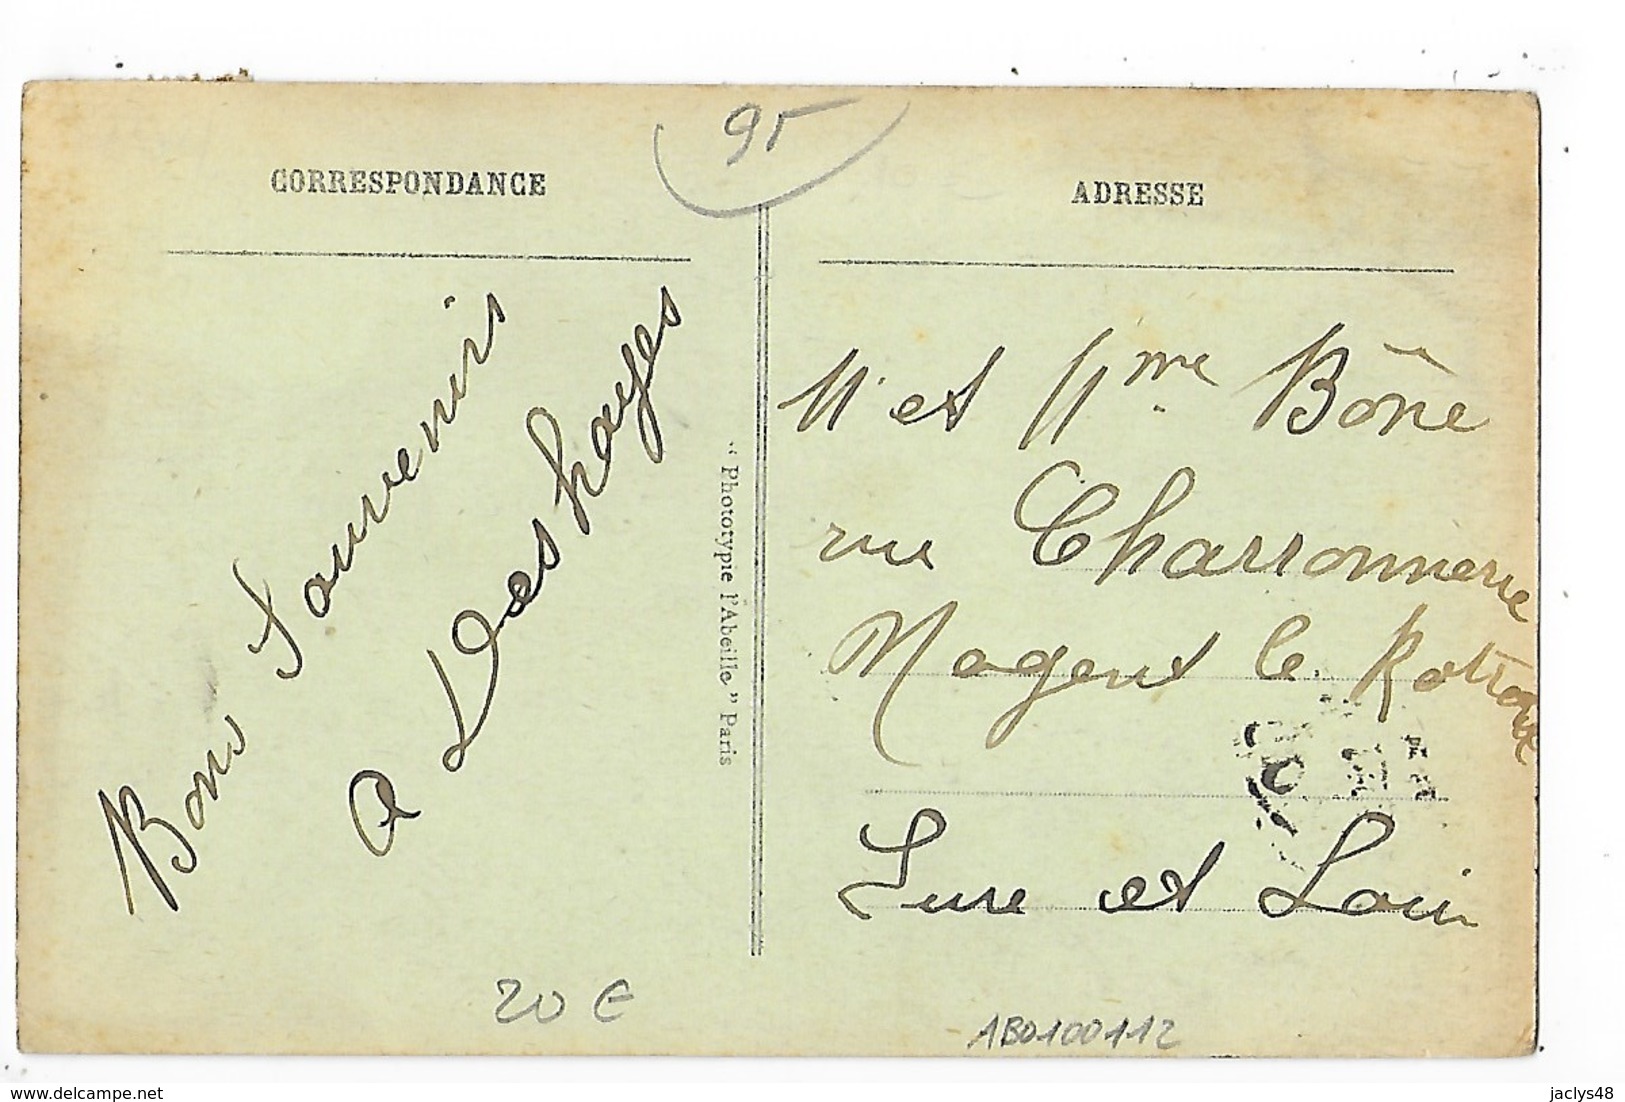 95
CORRESPONDANCE
Bons Souvenirs
A Deshayes
" Photographie l'Abeille " Paris
ADRESSE
M et Mme Bône
rue Charronnerie
Nogent le Rotrou
Eure et Loir
20 €
ABO100112
www.delcampe.net
jaclys48